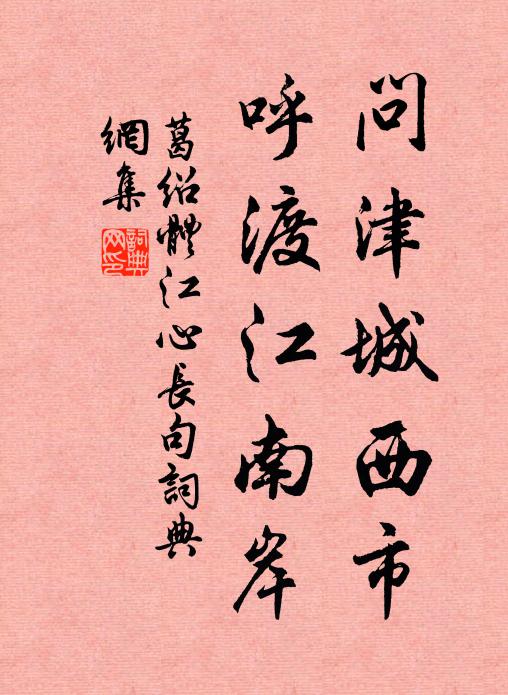 問津城西市
呼渡江南岸
葛紹體江心長句詞典
網集
詞典
网印